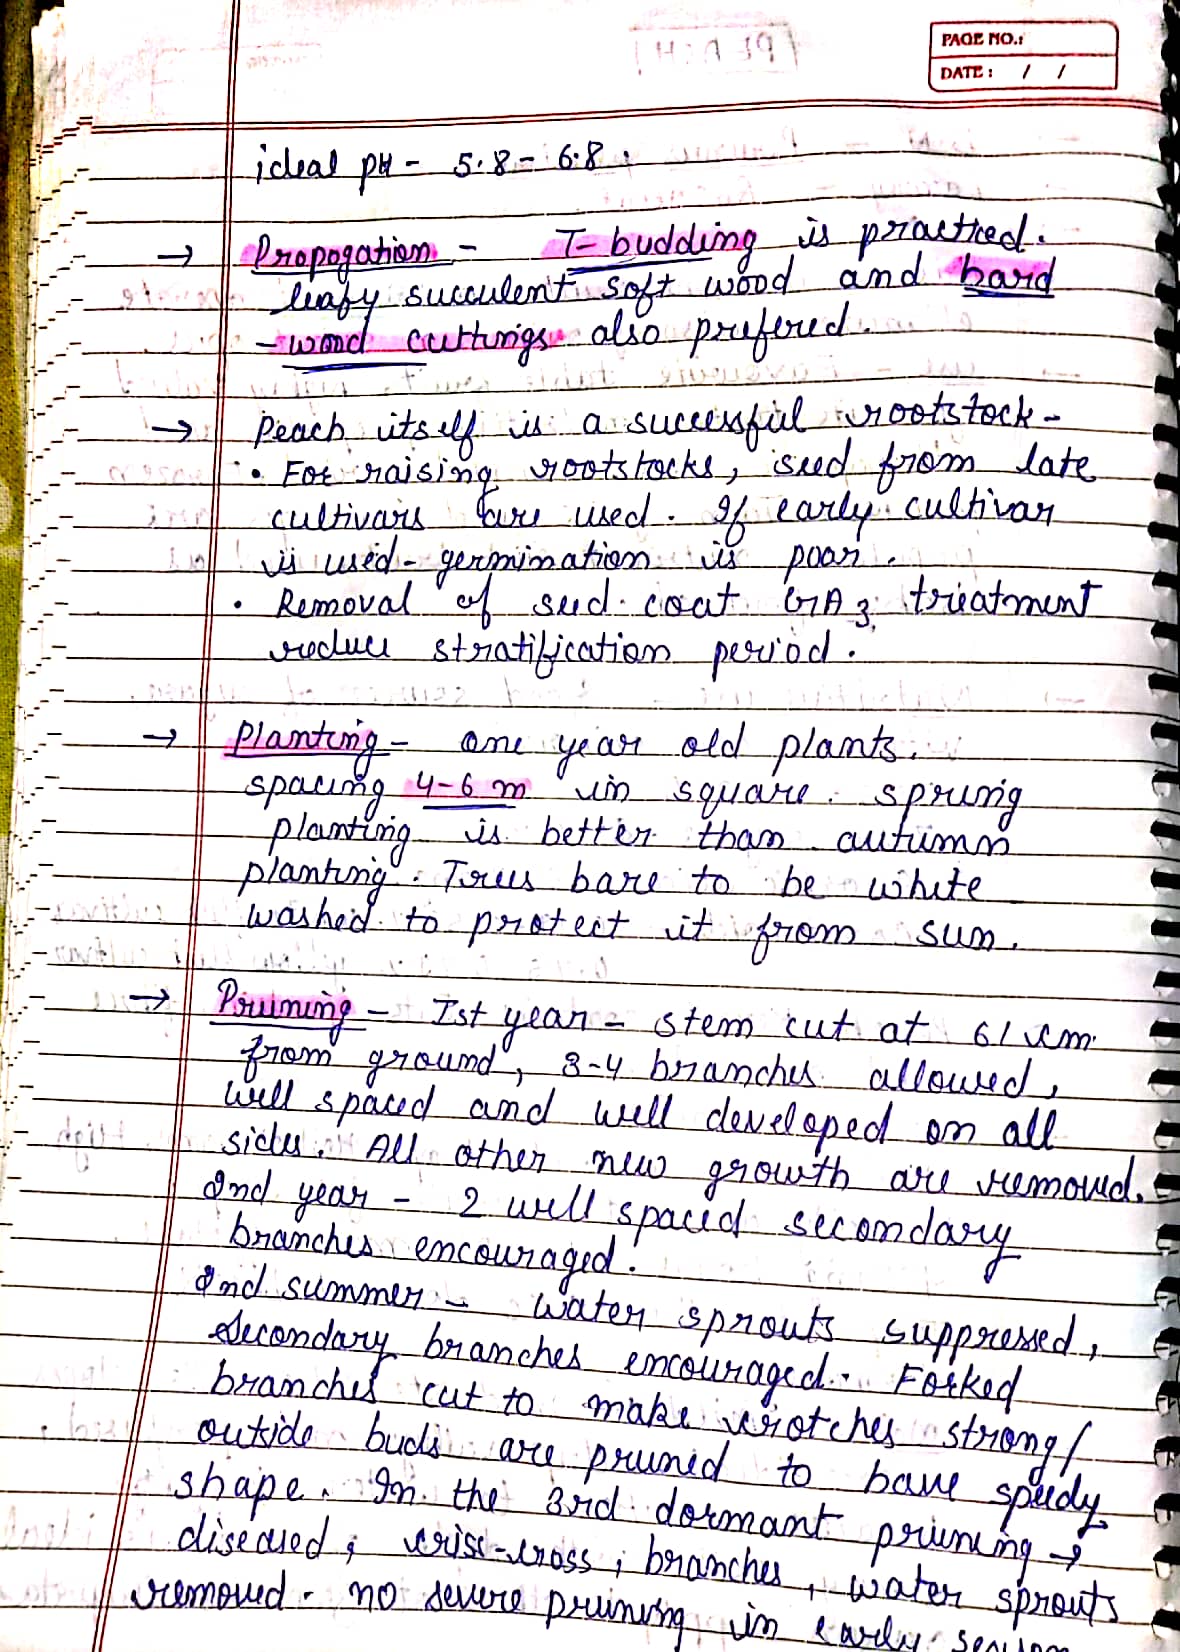 PAGE NO.:
DATE: / /
ideal pH - 5.8 - 6.8.
→ Propogation - T- budding is practiced.
leafy succulent soft wood and hard
- wood cuttings also prefered.
→ Peach itself is a successful rootstock -
• For raising rootstocks, seed from late
cultivars are used. If early cultivar
is used - germination is poor.
• Removal of seed coat GA3 treatment
reduce stratification period.
→ Planting - one year old plants.
spacing 4-6 m in square. spring
planting is better than autumn
planting. Trees have to be white
washed to protect it from sun.
→ Pruning - Ist year - stem cut at 61 cm
from ground, 3-4 branches allowed,
well spaced and well developed on all
sides. All other new growth are removed.
2nd year - 2 well spaced secondary
branches encouraged.
2nd summer - water sprouts suppressed,
secondary branches encouraged. Forked
branches cut to make crotches strong/
outside buds are pruned to have speedy
shape. In the 3rd dormant pruning →
diseased, criss-cross, branches, water sprouts
removed. no severe pruning in early season